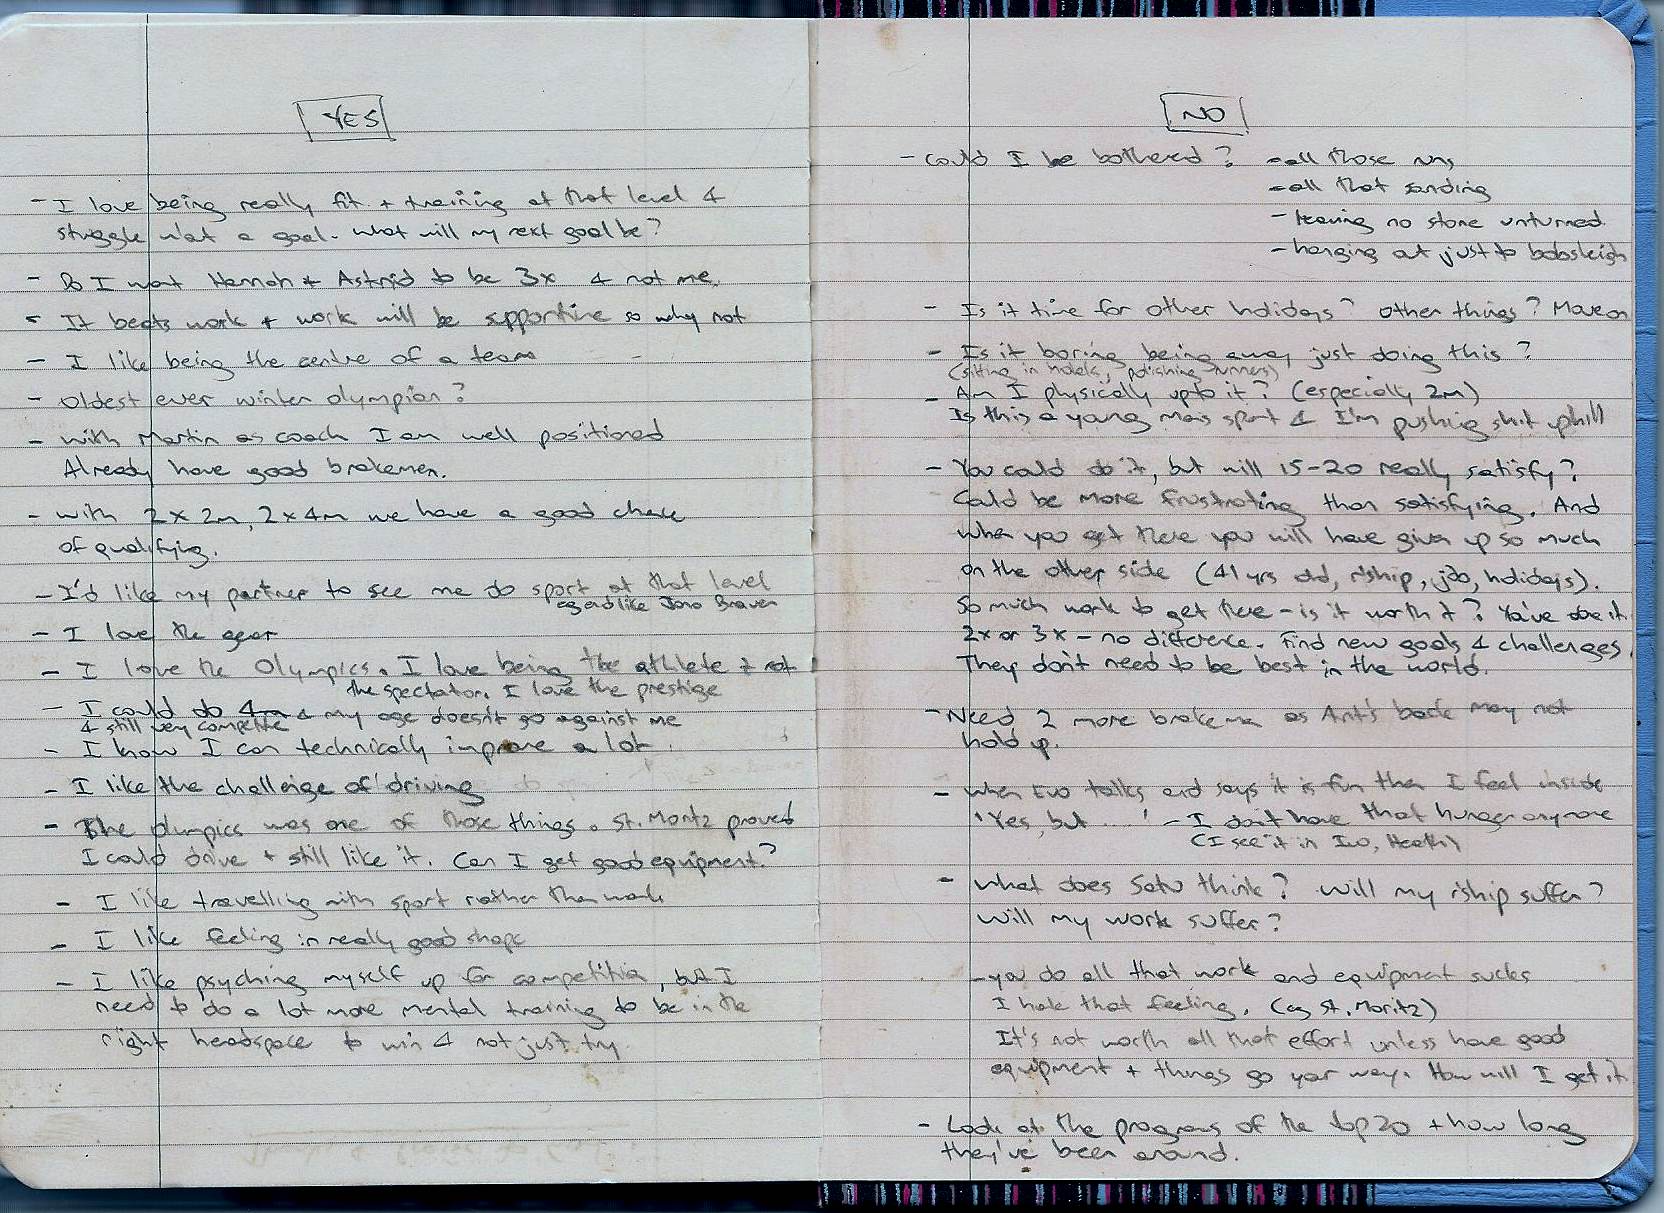 YES
- I love being really fit + training at that level &
struggle w'out a goal. What will my next goal be?
- Do I want Hannah + Astrid to be 3x & not me.
- It beats work + work will be supportive so why not
- I like being the centre of a team
- Oldest ever winter olympian?
- With Martin as coach I am well positioned
Already have good brakemen.
- With 2x2m, 2x4m we have a good chance
of qualifying.
- I'd like my partner to see me do sport at that level
- I love the gear
- I love the Olympics. I love being the athlete & not
the spectator. I love the prestige
- I could do 4m & my age doesn't go against me
& still very competitive
- I know I can technically improve a lot.
- I like the challenge of driving
- The olympics was one of those things. St. Moritz proved
I could drive + still like it. Can I get good equipment?
- I like travelling with sport rather than work
- I like feeling in really good shape
- I like psyching myself up for competition, but I
need to do a lot more mental training to be in the
right headspace to win & not just try
NO
- Could I be bothered? - all those runs
- all that sanding
- leaving no stone unturned
- hanging out just to bobsleigh
- Is it time for other holidays? Other things? Move on
- Is it boring being away just doing this?
(sitting in hotels, polishing runners)
- Am I physically upto it? (especially 2m)
Is this a young mans sport & I'm pushing shit uphill
- You could do it, but will 15-20 really satisfy?
Could be more frustrating than satisfying. And
when you get there you will have given up so much
on the other side (41 yrs old, r'ship, job, holidays).
So much work to get there - is it worth it? You've done it
2x or 3x - no difference. Find new goals & challenges.
They don't need to be best in the world.
- Need 2 more brakemen as Ant's back may not
hold up.
- When Ivo talks and says it is fun then I feel inside
'Yes, but ....' - I don't have that hunger anymore
(I see it in Ivo, Heath)
- What does Satu think? Will my r'ship suffer?
Will my work suffer?
- you do all that work and equipment sucks
I hate that feeling. (eg St. Moritz)
It's not worth all that effort unless have good
equipment + things go your way. How will I get it
- Look at the progress of the top 20 + how long
they've been around.